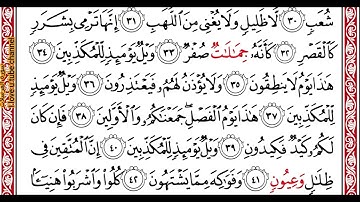 شُعَبٍ ٣٠ لَّا ظَلِيلٍ وَلَا يُغْنِي مِنَ اللَّهَبِ ٣١ إِنَّهَا تَرْمِي بِشَرَرٍ
كَالْقَصْرِ ٣٢ كَأَنَّهُ جِمَالَاتٌ صُفْرٌ ٣٣ وَيْلٌ يَوْمَئِذٍ لِّلْمُكَذِّبِينَ ٣٤
هَذَا يَوْمُ لَا يَنطِقُونَ ٣٥ وَلَا يُؤْذَنُ لَهُمْ فَيَعْتَذِرُونَ ٣٦ وَيْلٌ يَوْمَئِذٍ
لِّلْمُكَذِّبِينَ ٣٧ هَذَا يَوْمُ الْفَصْلِ جَمَعْنَاكُمْ وَالْأَوَّلِينَ ٣٨ فَإِن كَانَ
لَكُمْ كَيْدٌ فَكِيدُونِ ٣٩ وَيْلٌ يَوْمَئِذٍ لِّلْمُكَذِّبِينَ ٤٠ إِنَّ الْمُتَّقِينَ فِي
ظِلَالٍ وَعِيُونٍ ٤١ وَفَوَاكِهَ مِمَّا يَشْتَهُونَ ٤٢ كُلُوا وَاشْرَبُوا هَنِيئًا